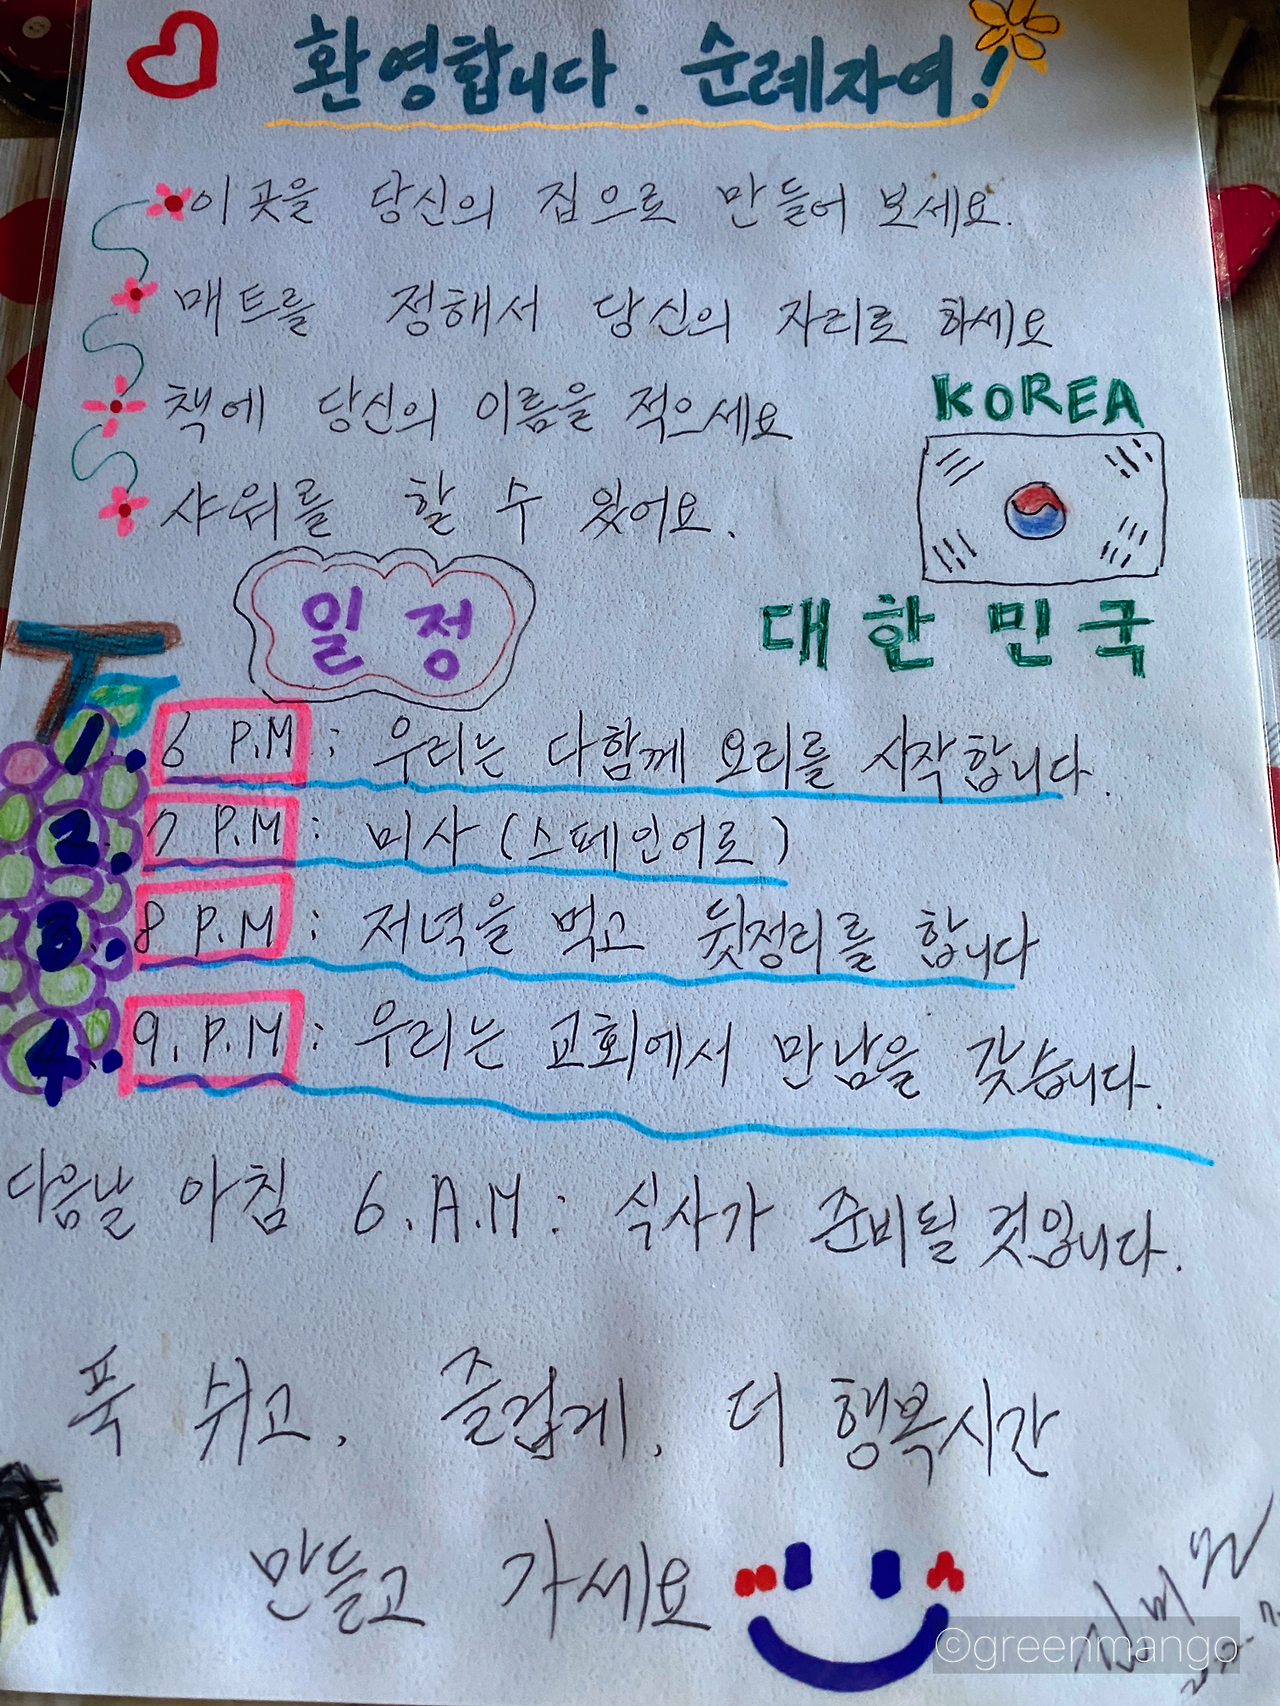 환영합니다. 순례자여!
이 곳을 당신의 집으로 만들어 보세요.
매트를 정해서 당신의 자리로 하세요
책에 당신의 이름을 적으세요
샤워를 할 수 있어요.
KOREA
대한민국
일정
1. 6 P.M : 우리는 다함께 요리를 시작합니다.
2. 7 P.M : 미사 (스페인어로)
3. 8 P.M : 저녁을 먹고 뒷정리를 합니다
4. 9. P.M : 우리는 교회에서 만남을 갖습니다.
다음날 아침 6.A.M : 식사가 준비될 것입니다.
푹 쉬고, 즐겁게, 더 행복시간
만들고 가세요
©greenmango